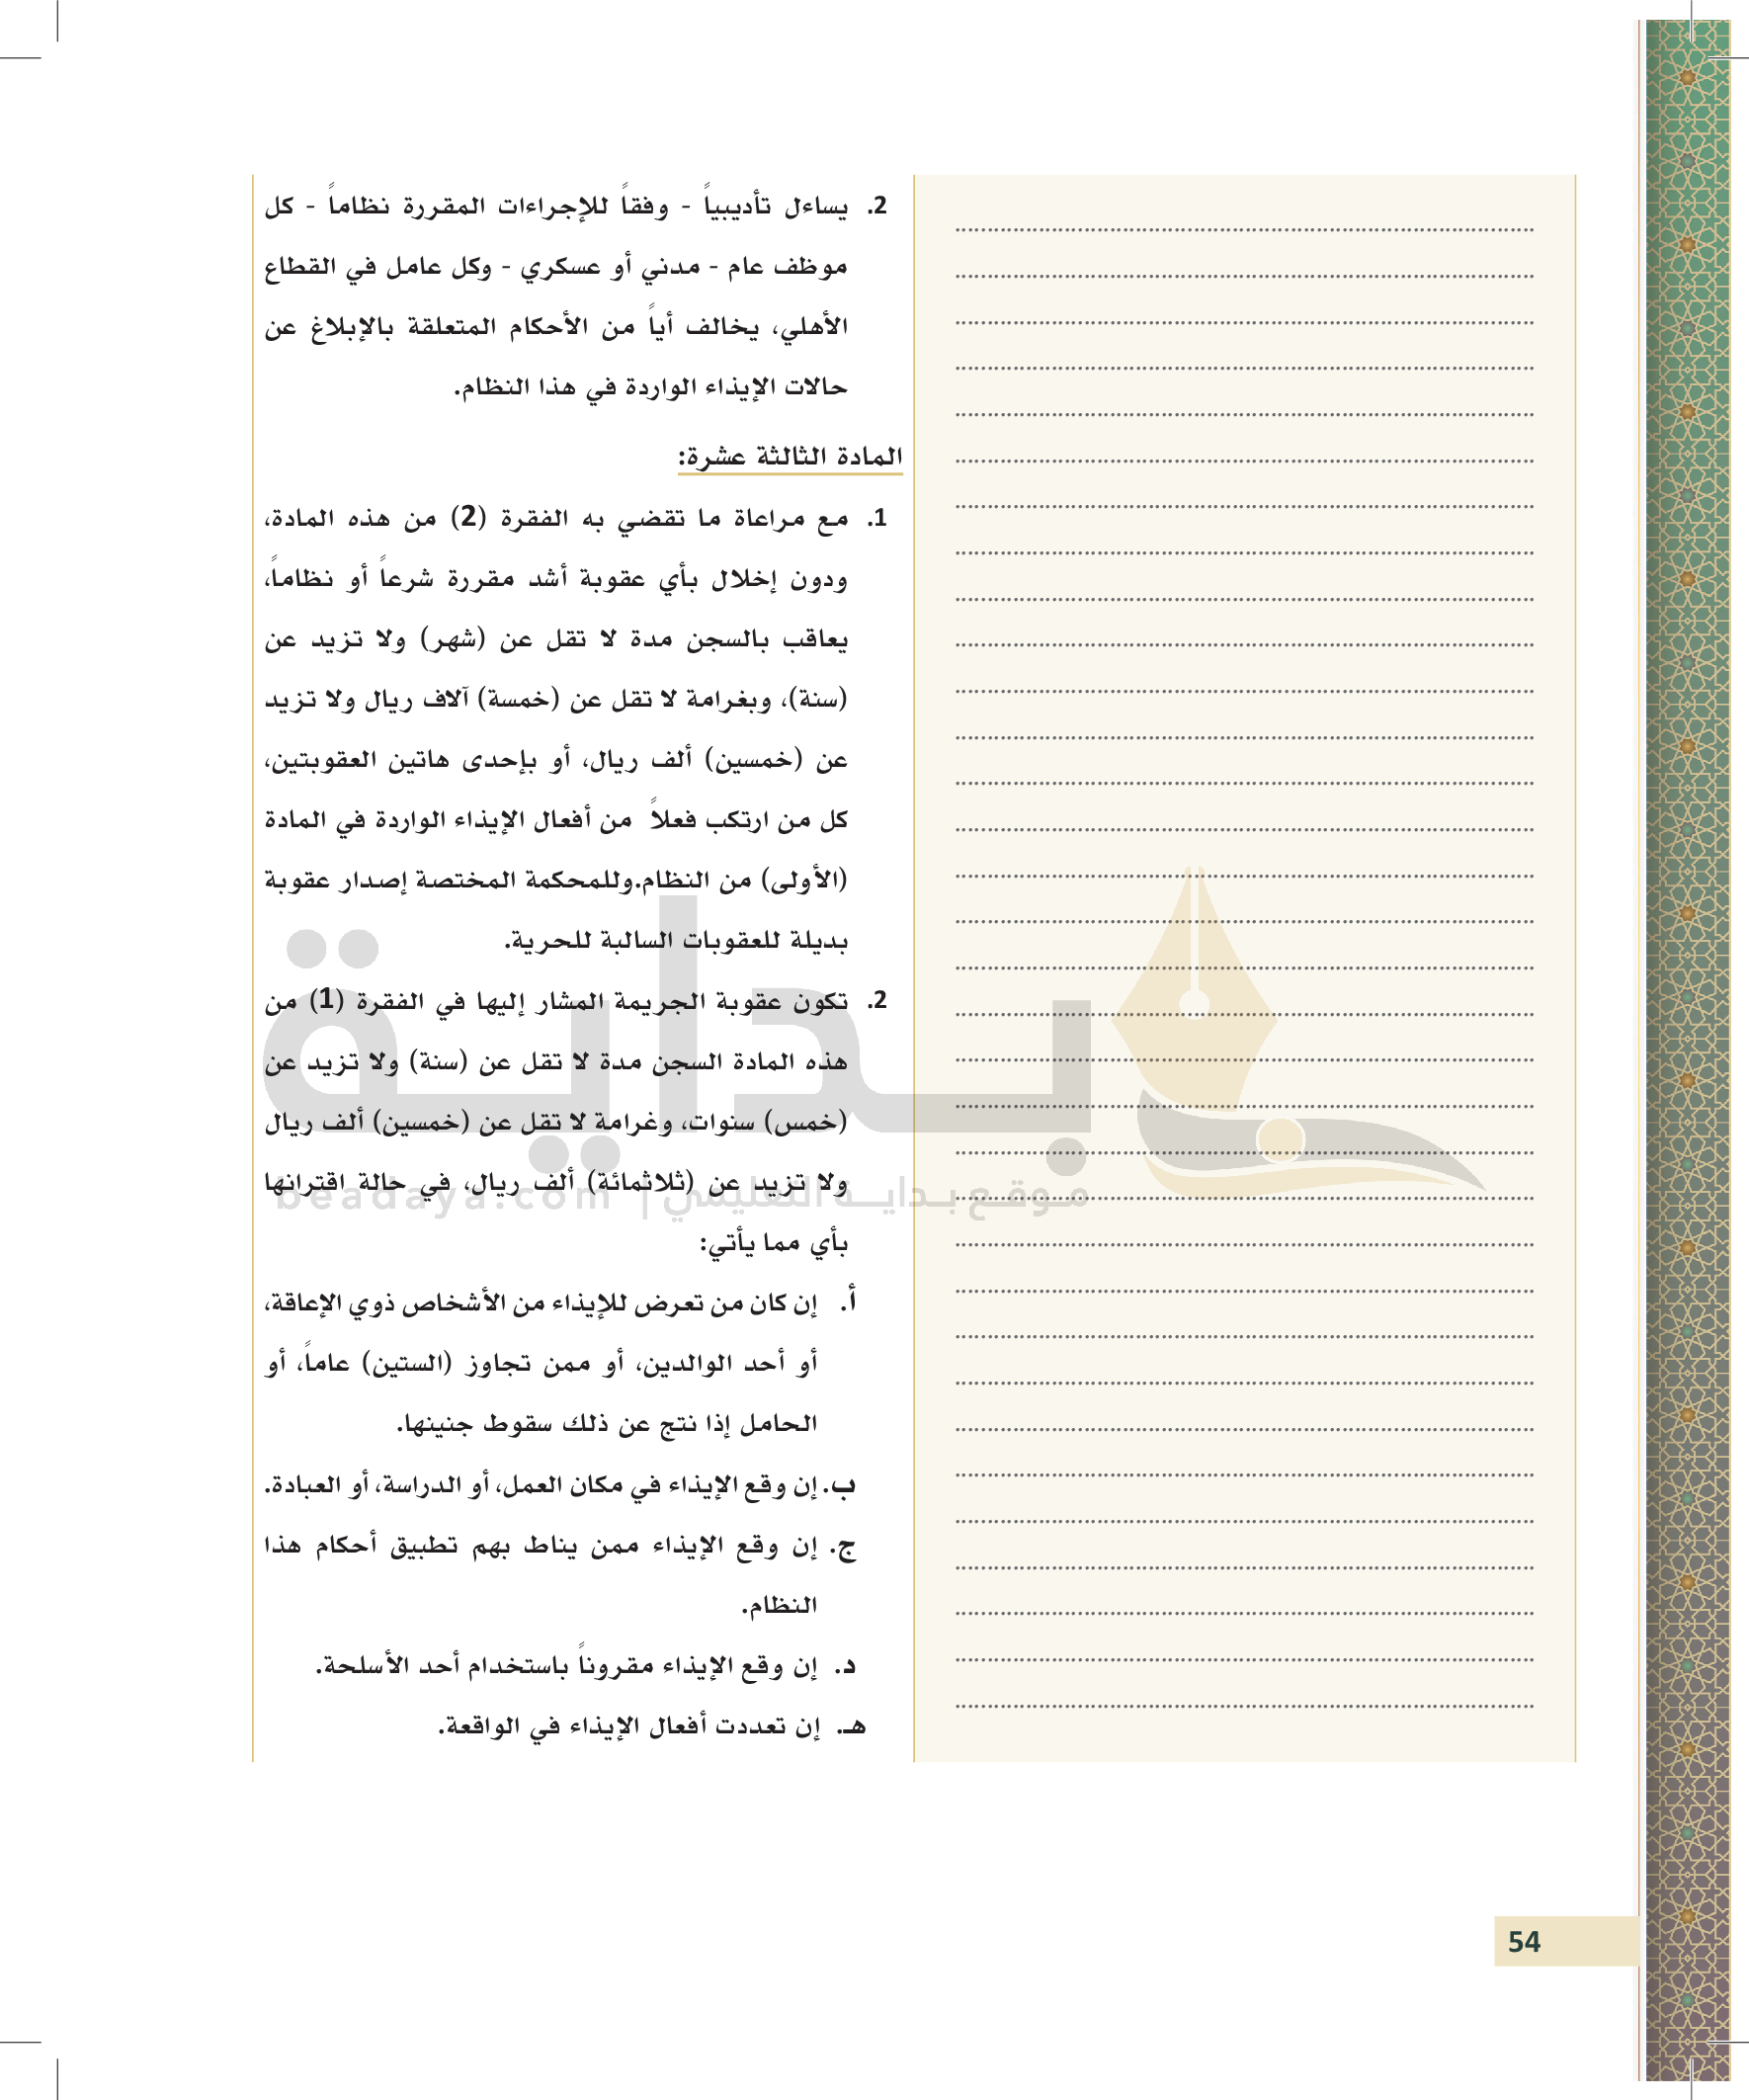 2. يساءل تأديبياً - وفقاً للإجراءات المقررة نظاماً - كل
موظف عام - مدني أو عسكري - وكل عامل في القطاع
الأهلي، يخالف أياً من الأحكام المتعلقة بالإبلاغ عن
حالات الإيذاء الواردة في هذا النظام.
المادة الثالثة عشرة:
1. مع مراعاة ما تقضي به الفقرة (2) من هذه المادة،
ودون إخلال بأي عقوبة أشد مقررة شرعاً أو نظاماً،
يعاقب بالسجن مدة لا تقل عن (شهر) ولا تزيد عن
(سنة)، وبغرامة لا تقل عن (خمسة) آلاف ريال ولا تزيد
عن (خمسين) ألف ريال، أو بإحدى هاتين العقوبتين،
كل من ارتكب فعلاً من أفعال الإيذاء الواردة في المادة
(الأولى) من النظام.وللمحكمة المختصة إصدار عقوبة
بديلة للعقوبات السالبة للحرية.
2. تكون عقوبة الجريمة المشار إليها في الفقرة (1) من
هذه المادة السجن مدة لا تقل عن (سنة) ولا تزيد عن
(خمس) سنوات، وغرامة لا تقل عن (خمسين) ألف ريال
ولا تزيد عن (ثلاثمائة) ألف ريال، في حالة اقترانها
بأي مما يأتي:
أ. إن كان من تعرض للإيذاء من الأشخاص ذوي الإعاقة،
أو أحد الوالدين، أو ممن تجاوز (الستين) عاماً، أو
الحامل إذا نتج عن ذلك سقوط جنينها.
ب. إن وقع الإيذاء في مكان العمل، أو الدراسة، أو العبادة.
ج. إن وقع الإيذاء ممن يناط بهم تطبيق أحكام هذا
النظام.
د. إن وقع الإيذاء مقروناً باستخدام أحد الأسلحة.
هـ. إن تعددت أفعال الإيذاء في الواقعة.
بداية
موقع بداية التعليمي | beadaya.com
54